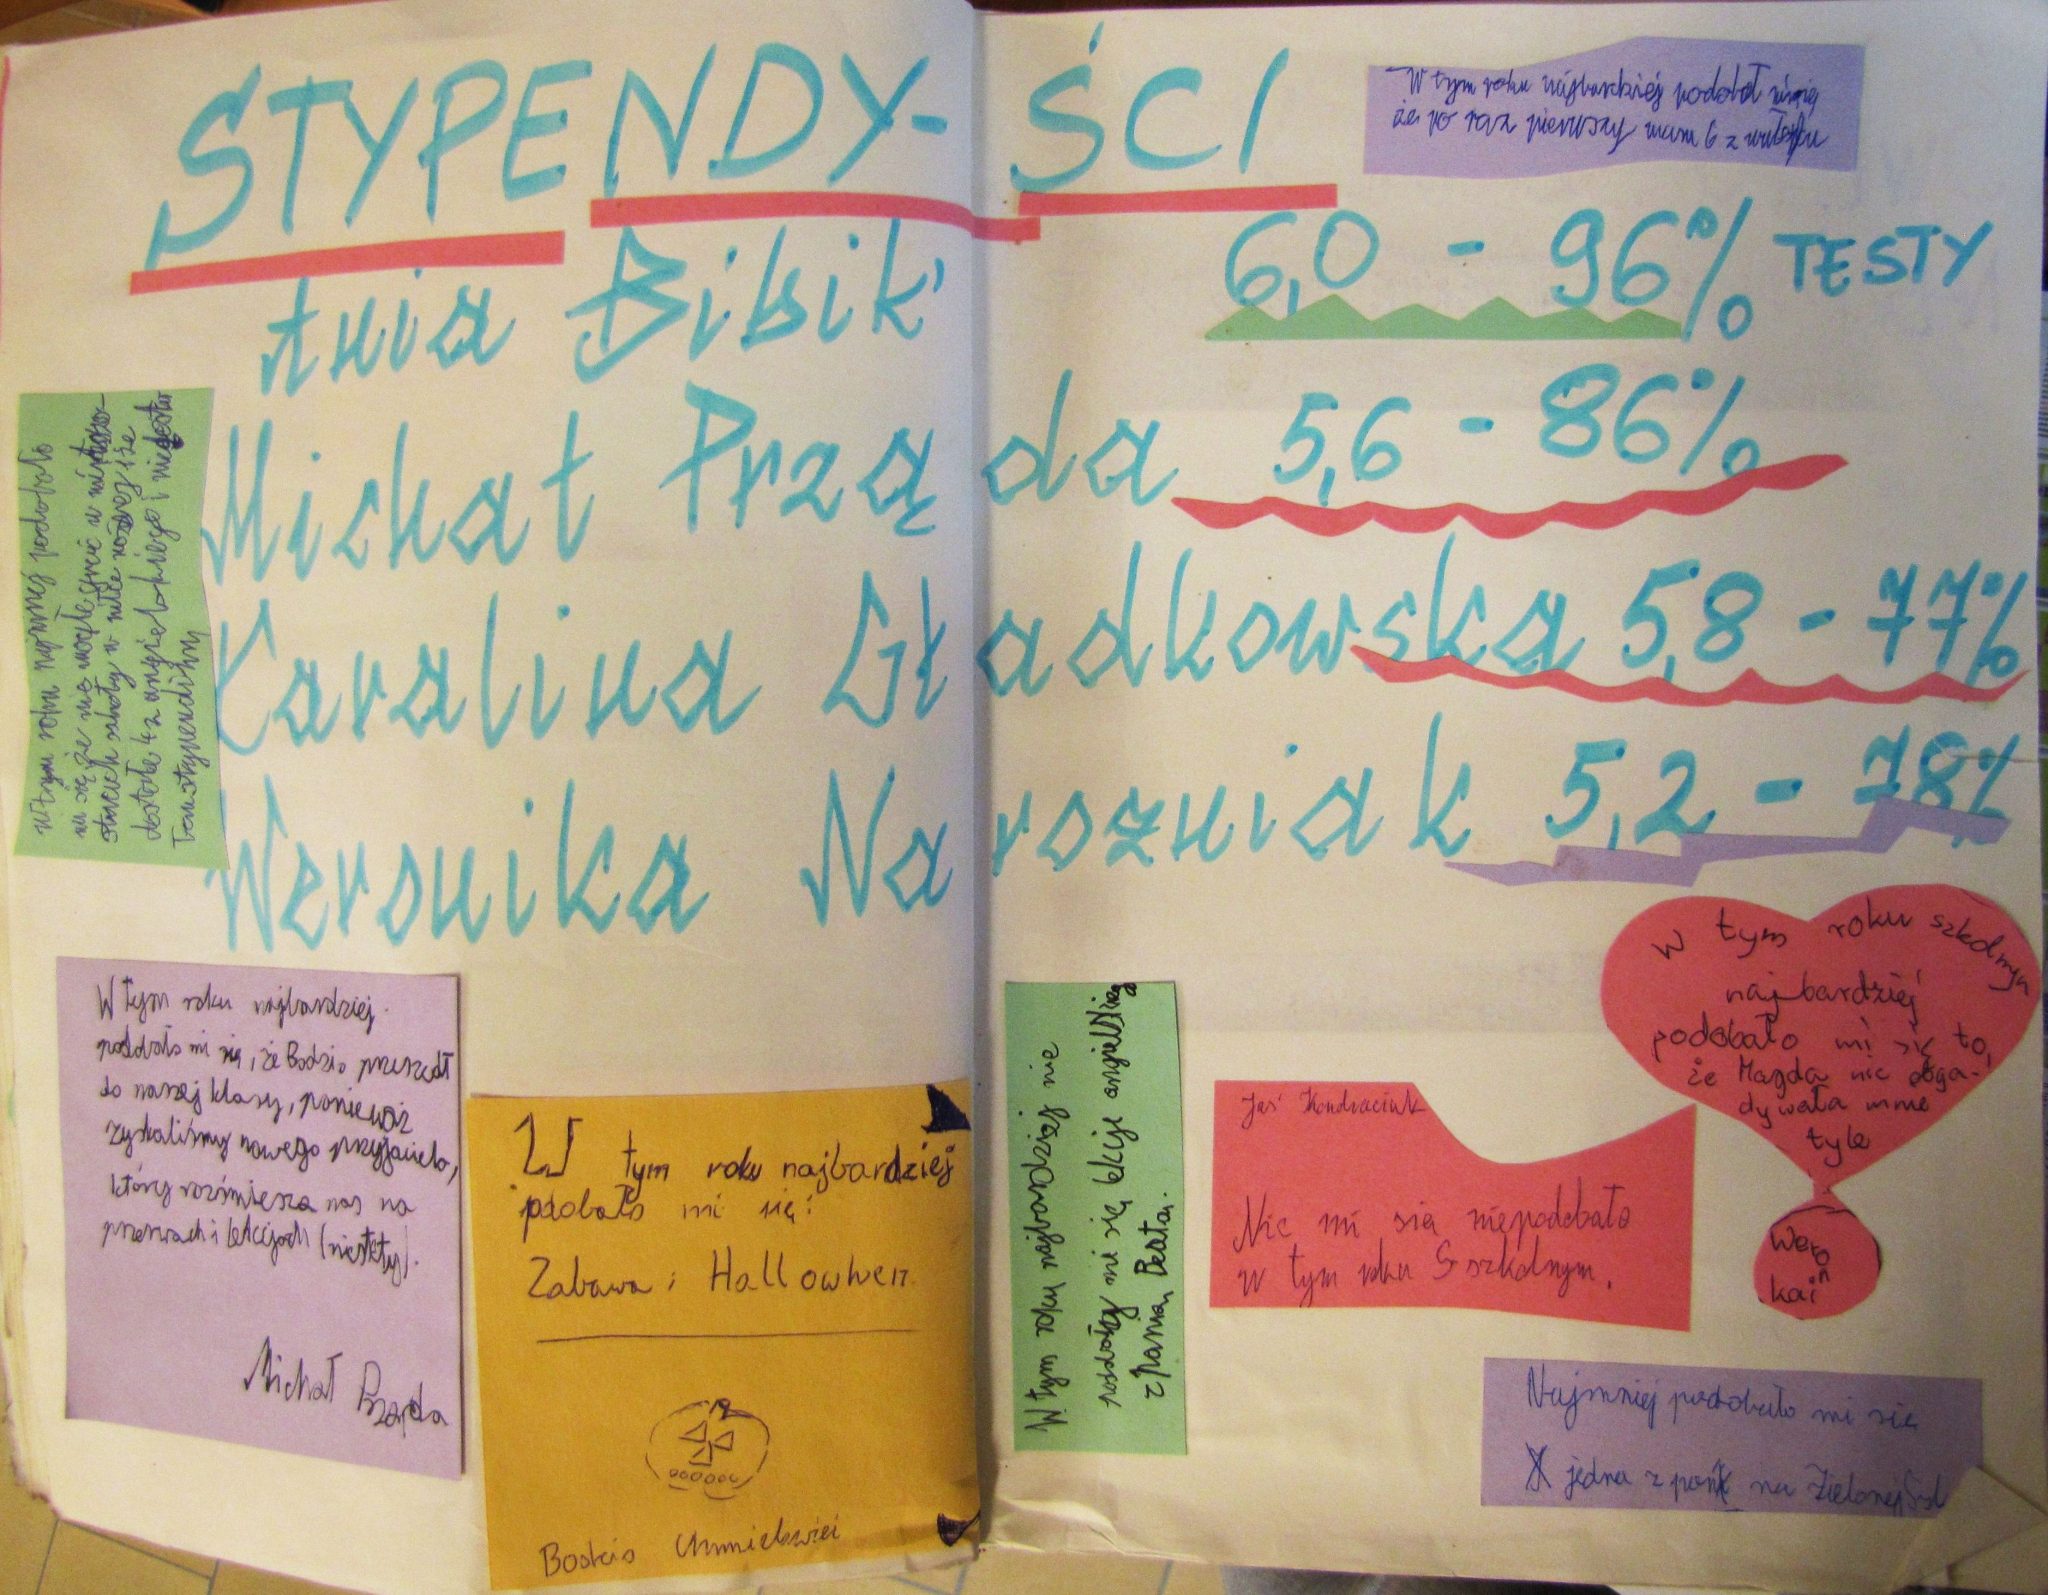 STYPENDY-ŚCI
W tym roku najbardziej podobał mi się
że po raz pierwszy mam 6 z
Ania Bibik 6,0 - 96% TESTY
Michał Prząda 5,6 - 86%
Karolina Gładkowska 5,8 - 77%
Weronika Narozniak 5,2 - 78%
W tym roku najmniej podobało
mi się że nie mogłe grać w
szkoły w
dostałe 4 z angielskiego i
stypendium
W tym roku najbardziej
podobało mi się, że Bodzio przeszedł
do naszej klasy, ponieważ
zyskaliśmy nowego przyjaciela,
który rozśmiesza nas na
przerwach i lekcjach (niestety).
Michał Prząda
W tym roku najbardziej
podobało mi się:
Zabawa i Hallowwen
W tym roku najbardziej nie
podobały mi się lekcje angielskiego
z Panią Beatą.
Jaś Kondraciuk
Nic mi sia niepodobało
w tym roku S szkolnym.
W tym roku szkolnym
najbardziej
podobało mi się to,
że Magda nie obga-
dywała mnie
tyle
Weron
kai
Najmniej podobało mi sie
jedna z pań na Zielonej